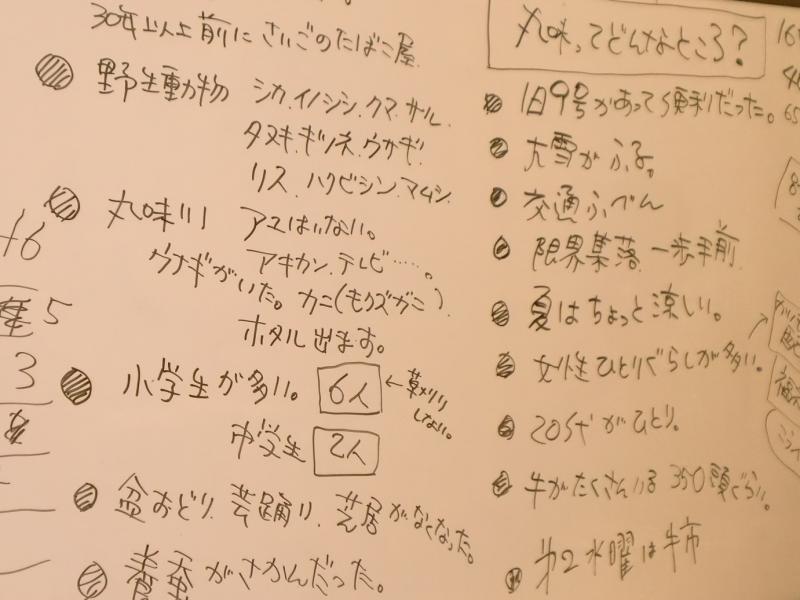 30年以上前にさいごのたばこ屋
野生動物 シカ.イノシシ.クマ.サル.
タヌキ.キツネ.ウサギ.
リス.ハクビシン.マムシ.
丸味川 アユはいない。
アキカン.テレビ……。
ウナギがいた。カニ(もクズガニ)
ホタル出ます。
小学生が多い。 6人 ←草メリリしない。
中学生 2人
盆おどり.芸踊り.芝居がなくなった。
養蚕がさかんだった。
丸味ってどんなところ?
旧9号があって便利だった。
大雪がふる。
交通ふべん
限界集落 一歩手前
夏はちょっと涼しい。
女性ひとりぐらしが多い。
20代がひとり。
牛がたくさんいる 350頭ぐらい。
第2水曜は市
16
5
3